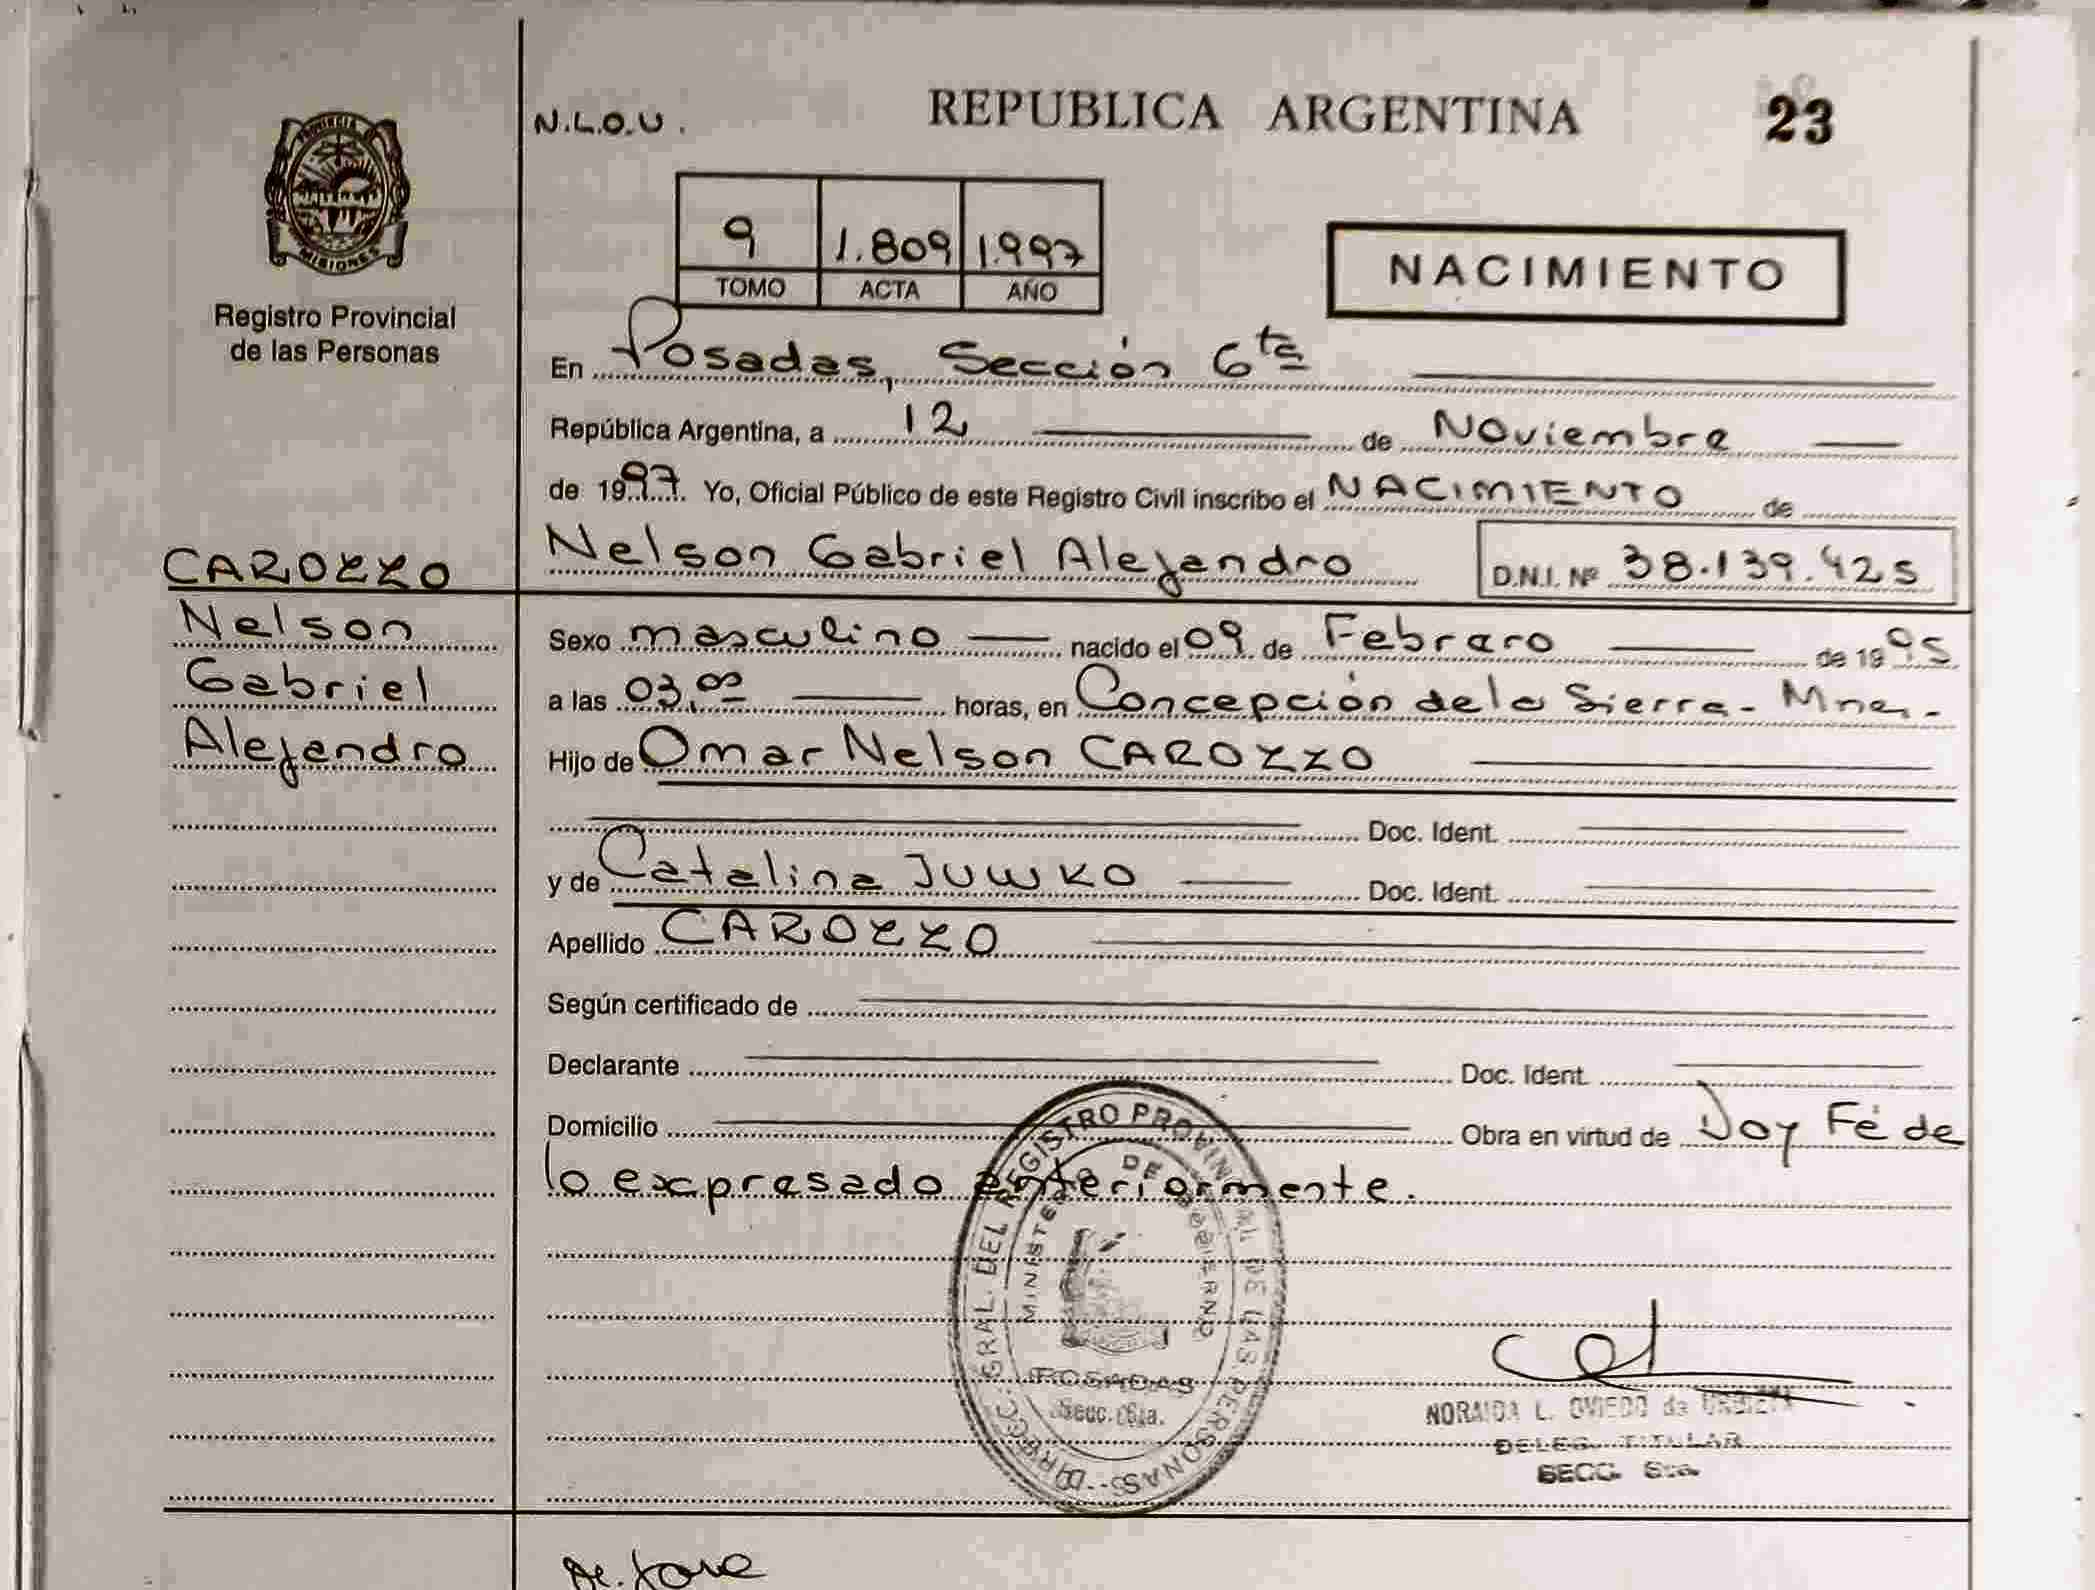 N.L.O.U.
REPUBLICA ARGENTINA
23
PROVINCIA DE
MISIONES
Registro Provincial
de las Personas
9 1.809 1.997
TOMO ACTA AÑO
NACIMIENTO
En Posadas, Sección 6ta
República Argentina, a 12 de Noviembre
de 1997. Yo, Oficial Público de este Registro Civil inscribo el NACIMIENTO de
Nelson Gabriel Alejandro D.N.I. Nº 38.139.425
CAROZZO
Nelson
Gabriel
Alejandro
Sexo masculino nacido el 09 de Febrero de 1995
a las 03,00 horas, en Concepción de la Sierra - Mnes.-
Hijo de Omar Nelson CAROZZO
Doc. Ident.
y de Catalina JUWKO Doc. Ident.
Apellido CAROZZO
Según certificado de
Declarante Doc. Ident.
Domicilio Obra en virtud de Doy Fé de
lo expresado anteriormente.
DIRECC. GRAL. DEL REGISTRO PROVINCIAL DE LAS PERSONAS
MINISTERIO DE GOBIERNO
POSADAS
Secc. 6ta.
NORAIDA L. OVIEDO de
DELEG. TITULAR
SECC. 6ta.